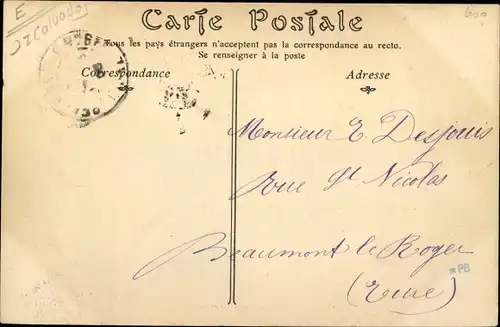 E
Carte Postale
Tous les pays étrangers n'acceptent pas la correspondance au recto.
Se renseigner à la poste
Correspondance
Adresse
Monsieur E Desjouis
rue St Nicolas
Beaumont le Roger
(Eure)
*PB